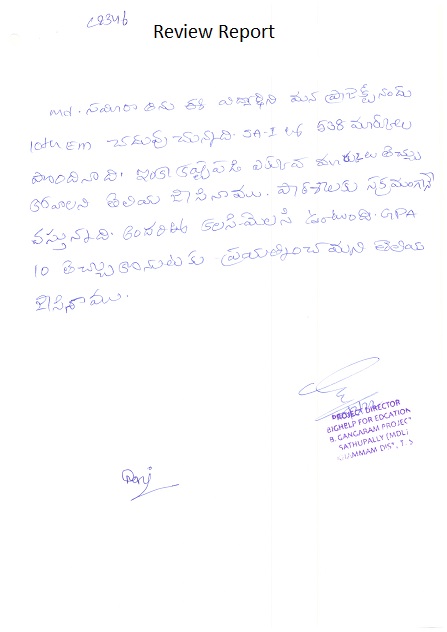 C8346
Review Report
md. సమీరా అను ఈ విద్యార్థిని మన ప్రాజెక్ట్ నందు
10th Em చదువుచున్నాది. SA-1 లో 538 మార్కులు
పొందినాది. ఇంకా కష్టపడి ఎక్కువ మార్కులు తెచ్చు
కోవాలని తెలియ జేసినాము. పాఠశాలకు సక్రమంగానే
వస్తున్నాది. అందరితో కలసి-మెలసి ఉంటుంది. GPA
10 తెచ్చుకొనుటకు ప్రయత్నించమని తెలియ
జేసినాము.
PROJECT DIRECTOR
BIGHELP FOR EDCATION
B. GANGARAM PROJECT
SATHUPALLY (MDL)
KHAMMAM DIST. T.S